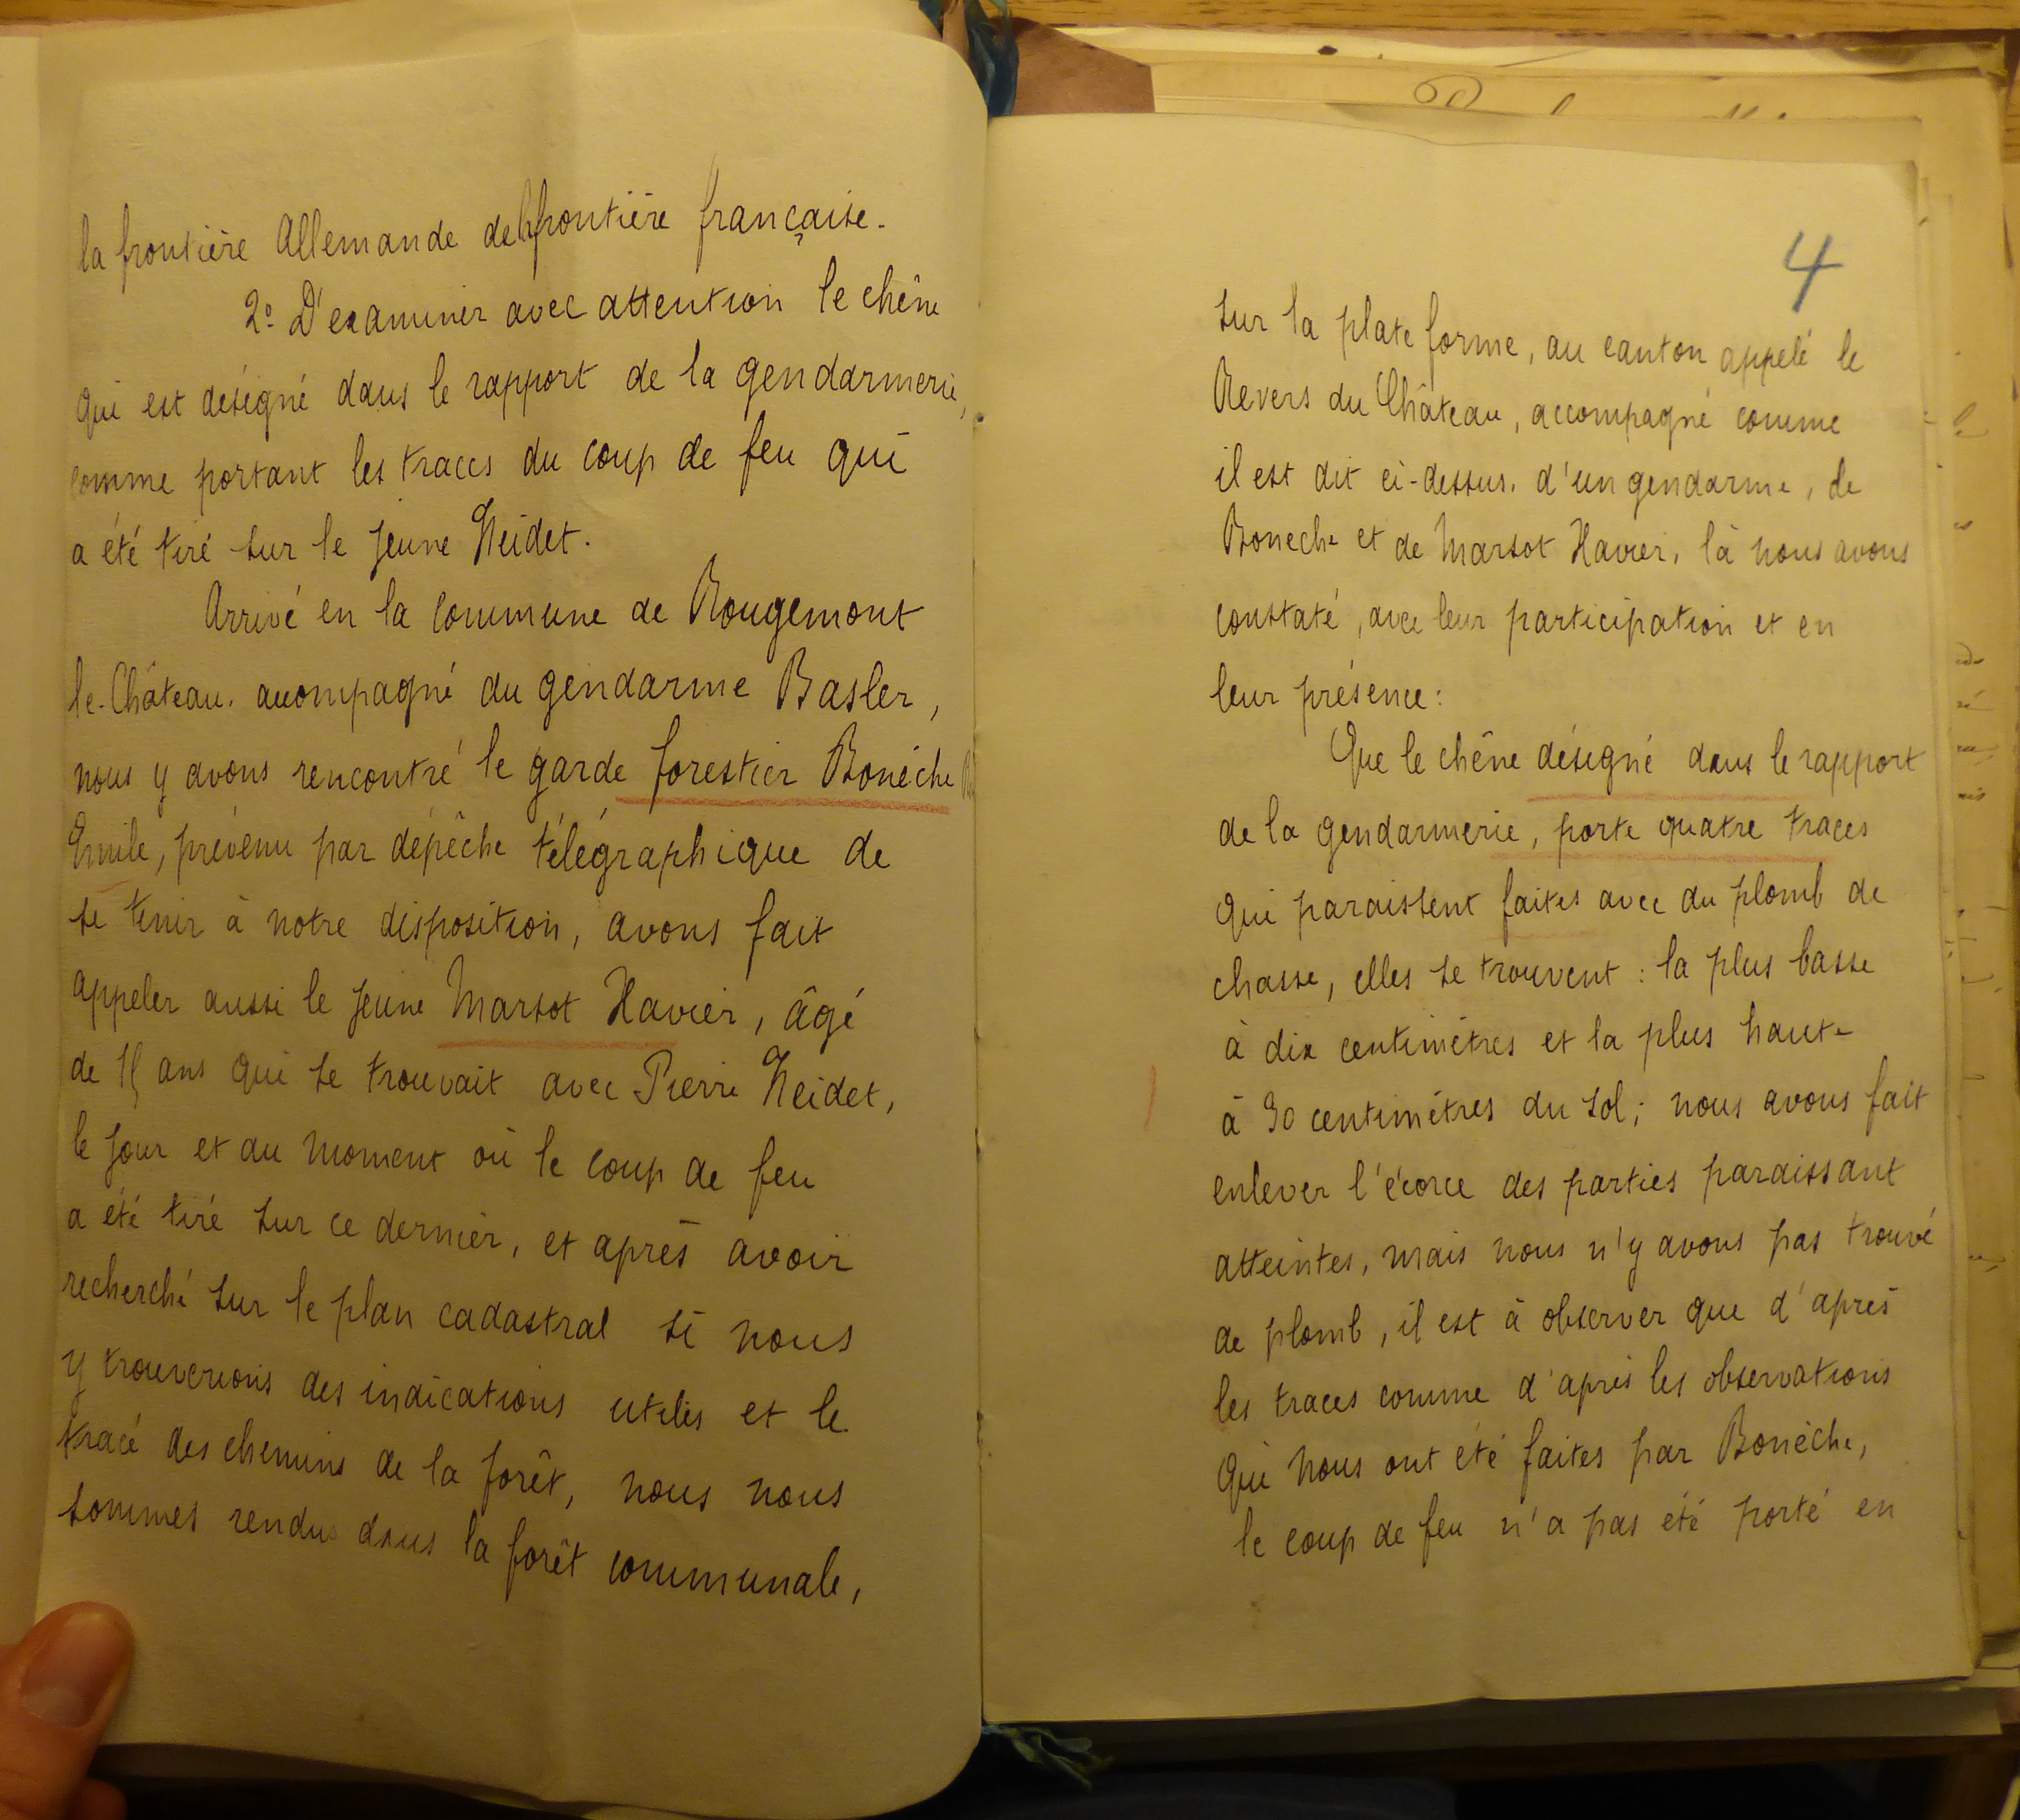 la frontière Allemande de la frontière française.
2º D'examiner avec attention le chêne
qui est désigné dans le rapport de la gendarmerie,
comme portant les traces du coup de feu qui
a été tiré sur le jeune Neidet.
Arrivé en la commune de Rougemont
le-Château. accompagné du gendarme Basler,
nous y avons rencontré le garde forestier Bonèche
Emile, prévenu par dépêche télégraphique de
se tenir à notre disposition, avons fait
appeler aussi le jeune Marsot Xavier, âgé
de ans qui se trouvait avec Pierre Neidet,
le jour et au moment où le coup de feu
a été tiré sur ce dernier, et après avoir
recherché sur le plan cadastral si nous
y trouverions des indications utiles et le
tracé des chemins de la forêt, nous nous
sommes rendus dans la forêt communale,
4
sur la plate forme, au canton appelé le
Revers du Château, accompagné comme
il est dit ci-dessus. d'un gendarme, de
Boneche et de Marsot Xavier, là nous avons
constaté, avec leur participation et en
leur présence:
Que le chêne désigné dans le rapport
de la gendarmerie, porte quatre traces
qui paraissent faites avec du plomb de
chasse, elles se trouvent: la plus basse
à dix centimètres et la plus haute
à centimètres du sol; nous avons fait
enlever l'écorce des parties paraissant
atteintes, mais nous n'y avons pas trouvé
de plomb, il est à observer que d'après
les traces comme d'après les observations
qui nous ont été faites par Bonèche,
le coup de feu n'a pas été porté en